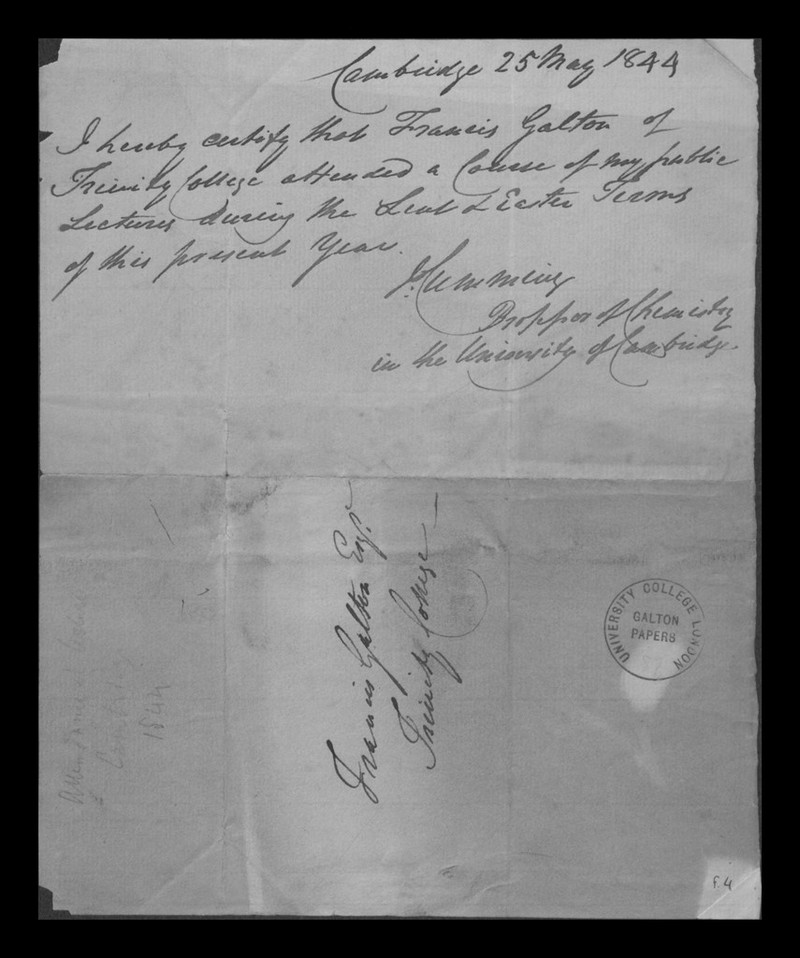 Cambridge 25 May 1844
I hereby certify that Francis Galton of
Trinity College attended a Course of my public
Lectures during the Lent & Easter Terms
of this present Year.
J. Cumming
Professor of Chemistry
in the University of Cambridge.
Francis Galton Esqr.
Trinity College
UNIVERSITY COLLEGE LONDON
GALTON
PAPERS
1844
F.4